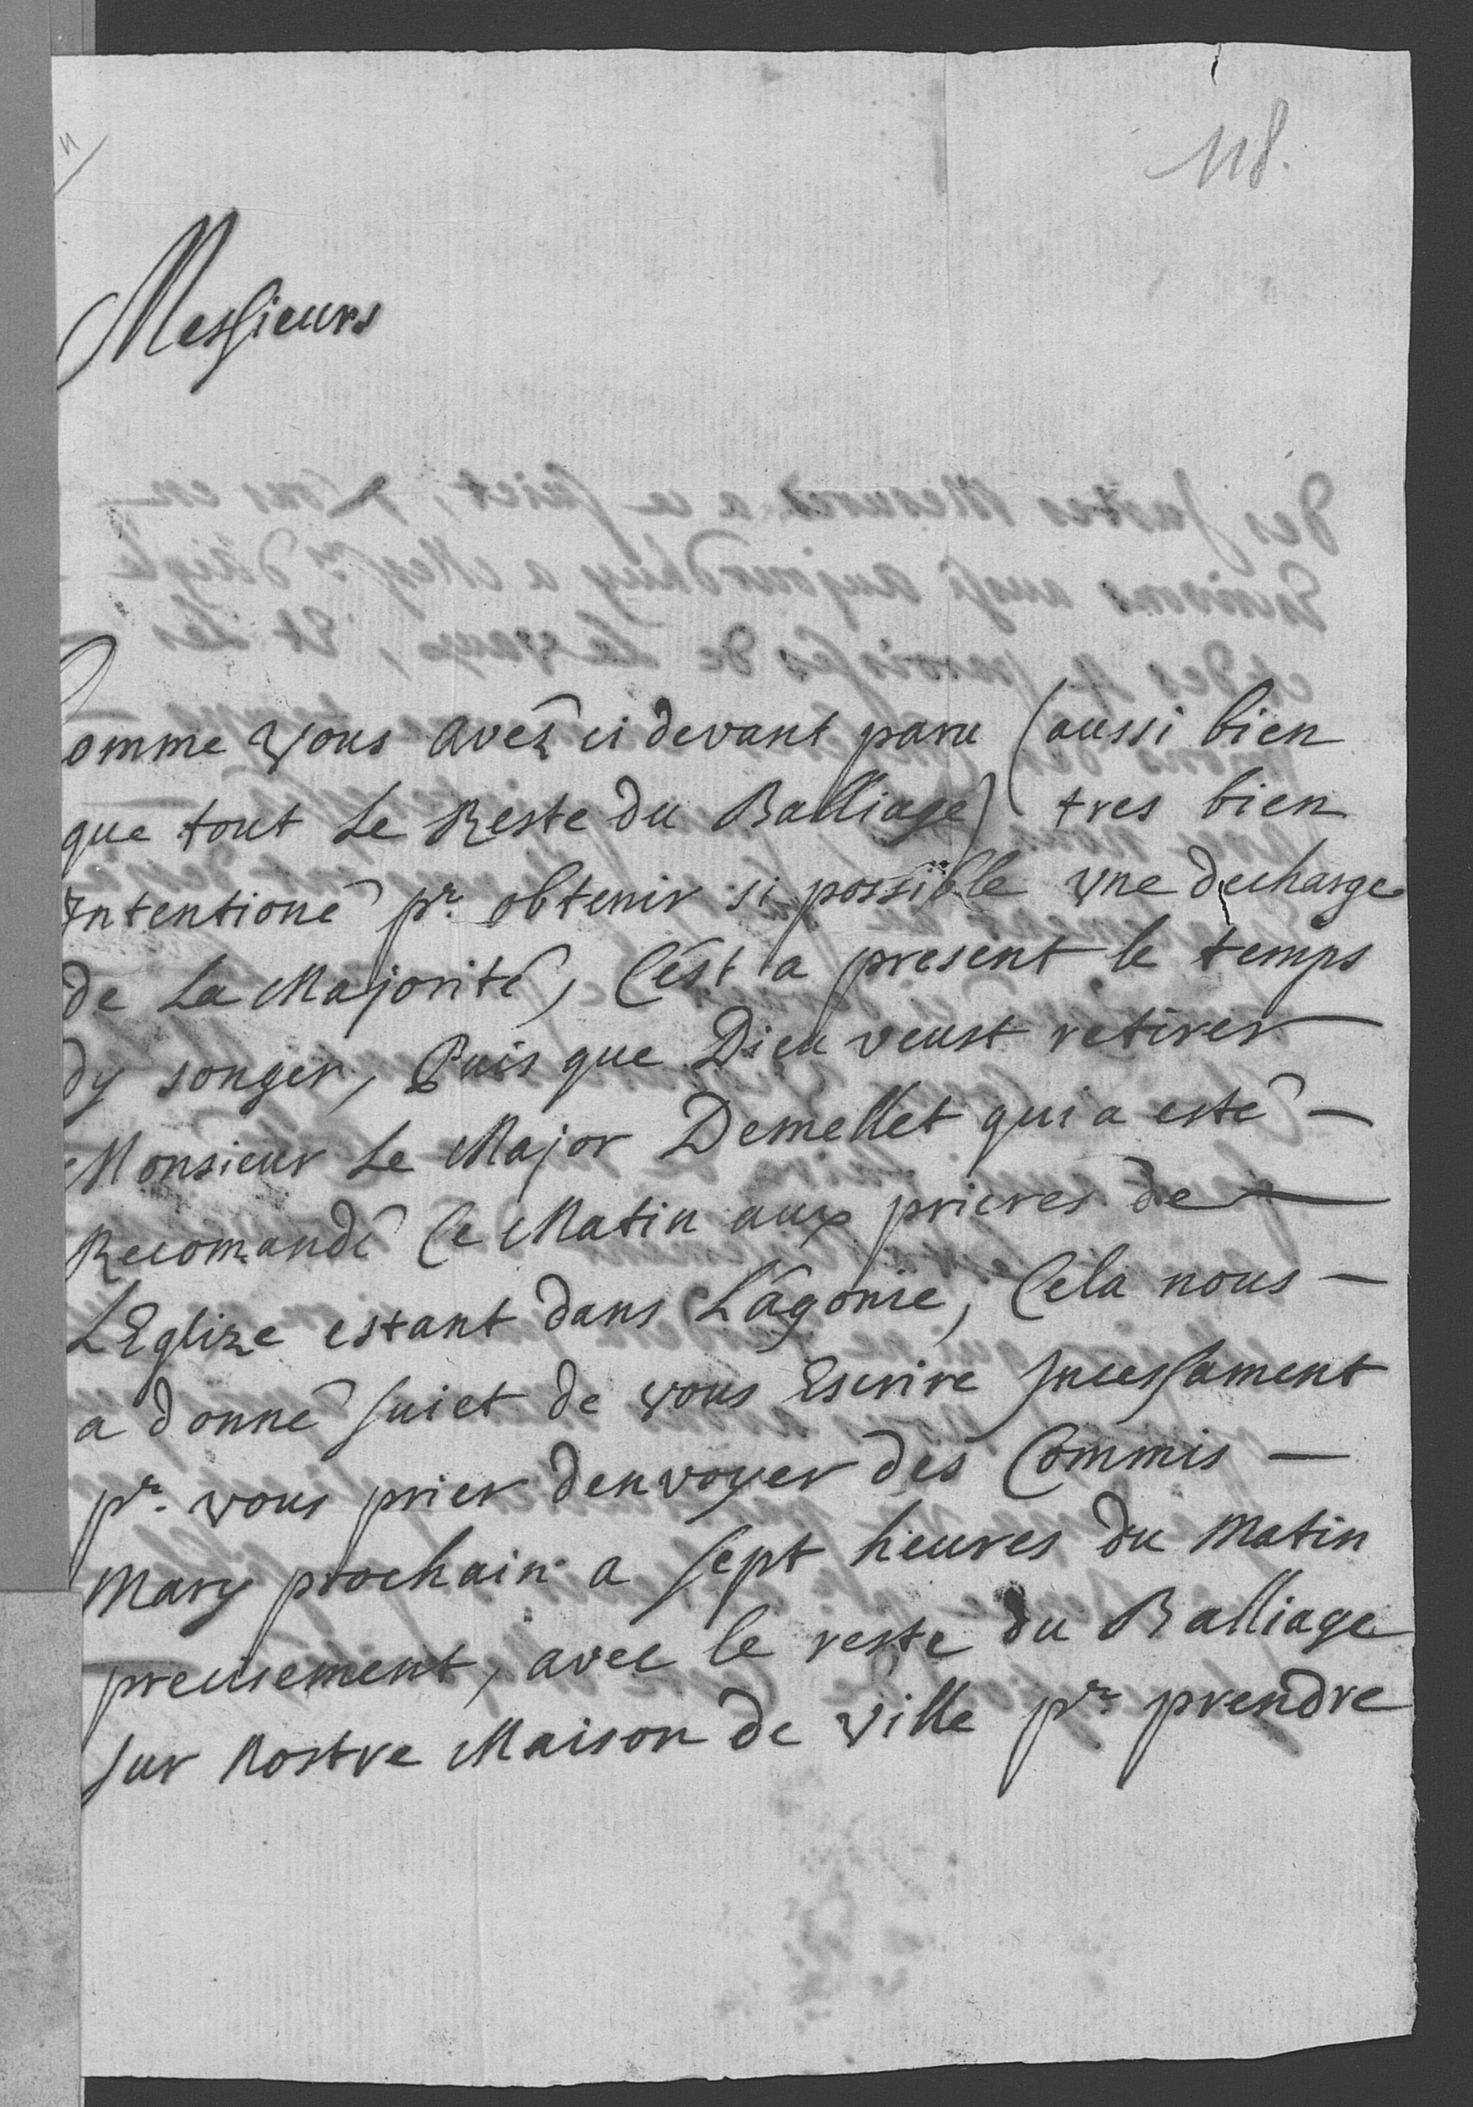 118.
Messieurs
Comme vous avéz ci devant paru (aussi bien
que tout Le Reste du Balliage) tres bien
Intentioné pr. obtenir si possible vne decharge
de La Majorité, C'est a present le temps
dy songer, Puis que Dieu veust retirer
Monsieur Le Major Demellet qui a esté
Recomandé Ce Matin aux prieres de
LEglize estant dans L'agonie, Cela nous
a donné suiet de vous Escrire Incessament
pr. vous prier denvoyer des Commis
Mary prochain a sept heures du Matin
precisement, avec le reste du Balliage
sur Nostre Maison de ville pr. prendre